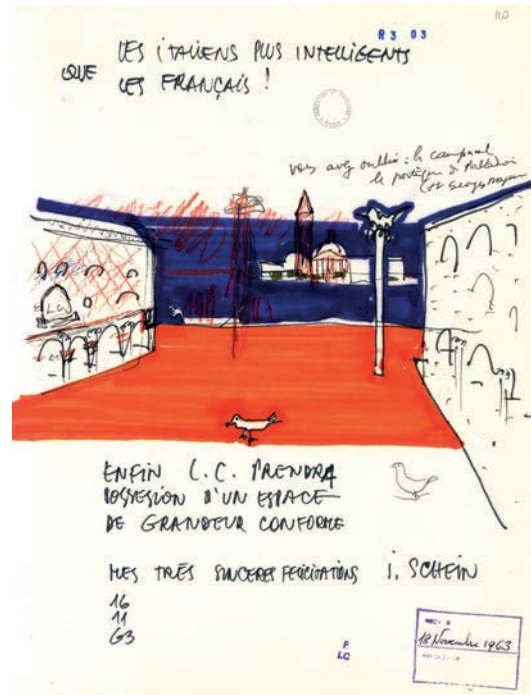 R 3 03
LES ITALIENS PLUS INTELLIGENTS
QUE LES FRANÇAIS !
vous avez oublié : le campanile
le portique di Palladio
St Georges
L.C.
ENFIN L.C. PRENDRA
POSSESSION D'UN ESPACE
DE GRANDEUR CONFORME
MES TRÉS SINCERES FELICITATIONS I. SCHEIN
16
11
63
F
LC
REÇU le
18 Novembre 1963